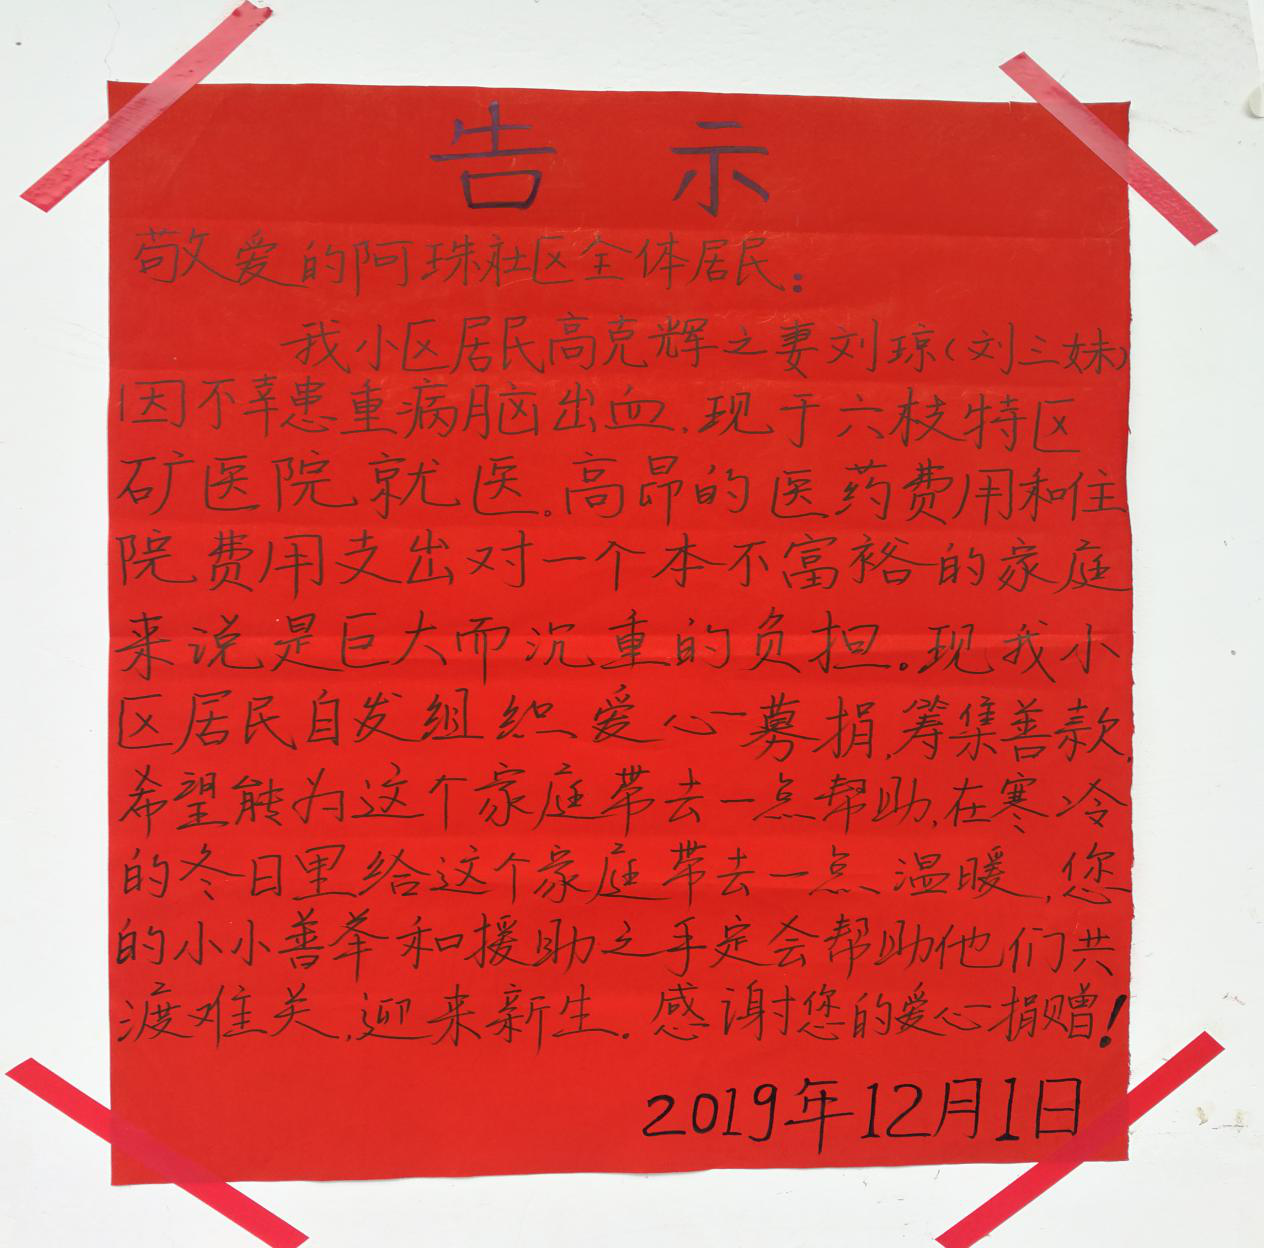 告示
敬爱的阿珠社区全体居民:
我小区居民高克辉之妻刘琼(刘三妹)
因不幸患重病脑出血,现于六枝特区
矿医院就医。高昂的医药费用和住
院费用支出对一个本不富裕的家庭
来说是巨大而沉重的负担。现我小
区居民自发组织爱心募捐,筹集善款,
希望能为这个家庭带去一点帮助,在寒冷
的冬日里给这个家庭带去一点温暖,您
的小小善举和援助之手定会帮助他们共
渡难关,迎来新生。感谢您的爱心捐赠!
2019年12月1日